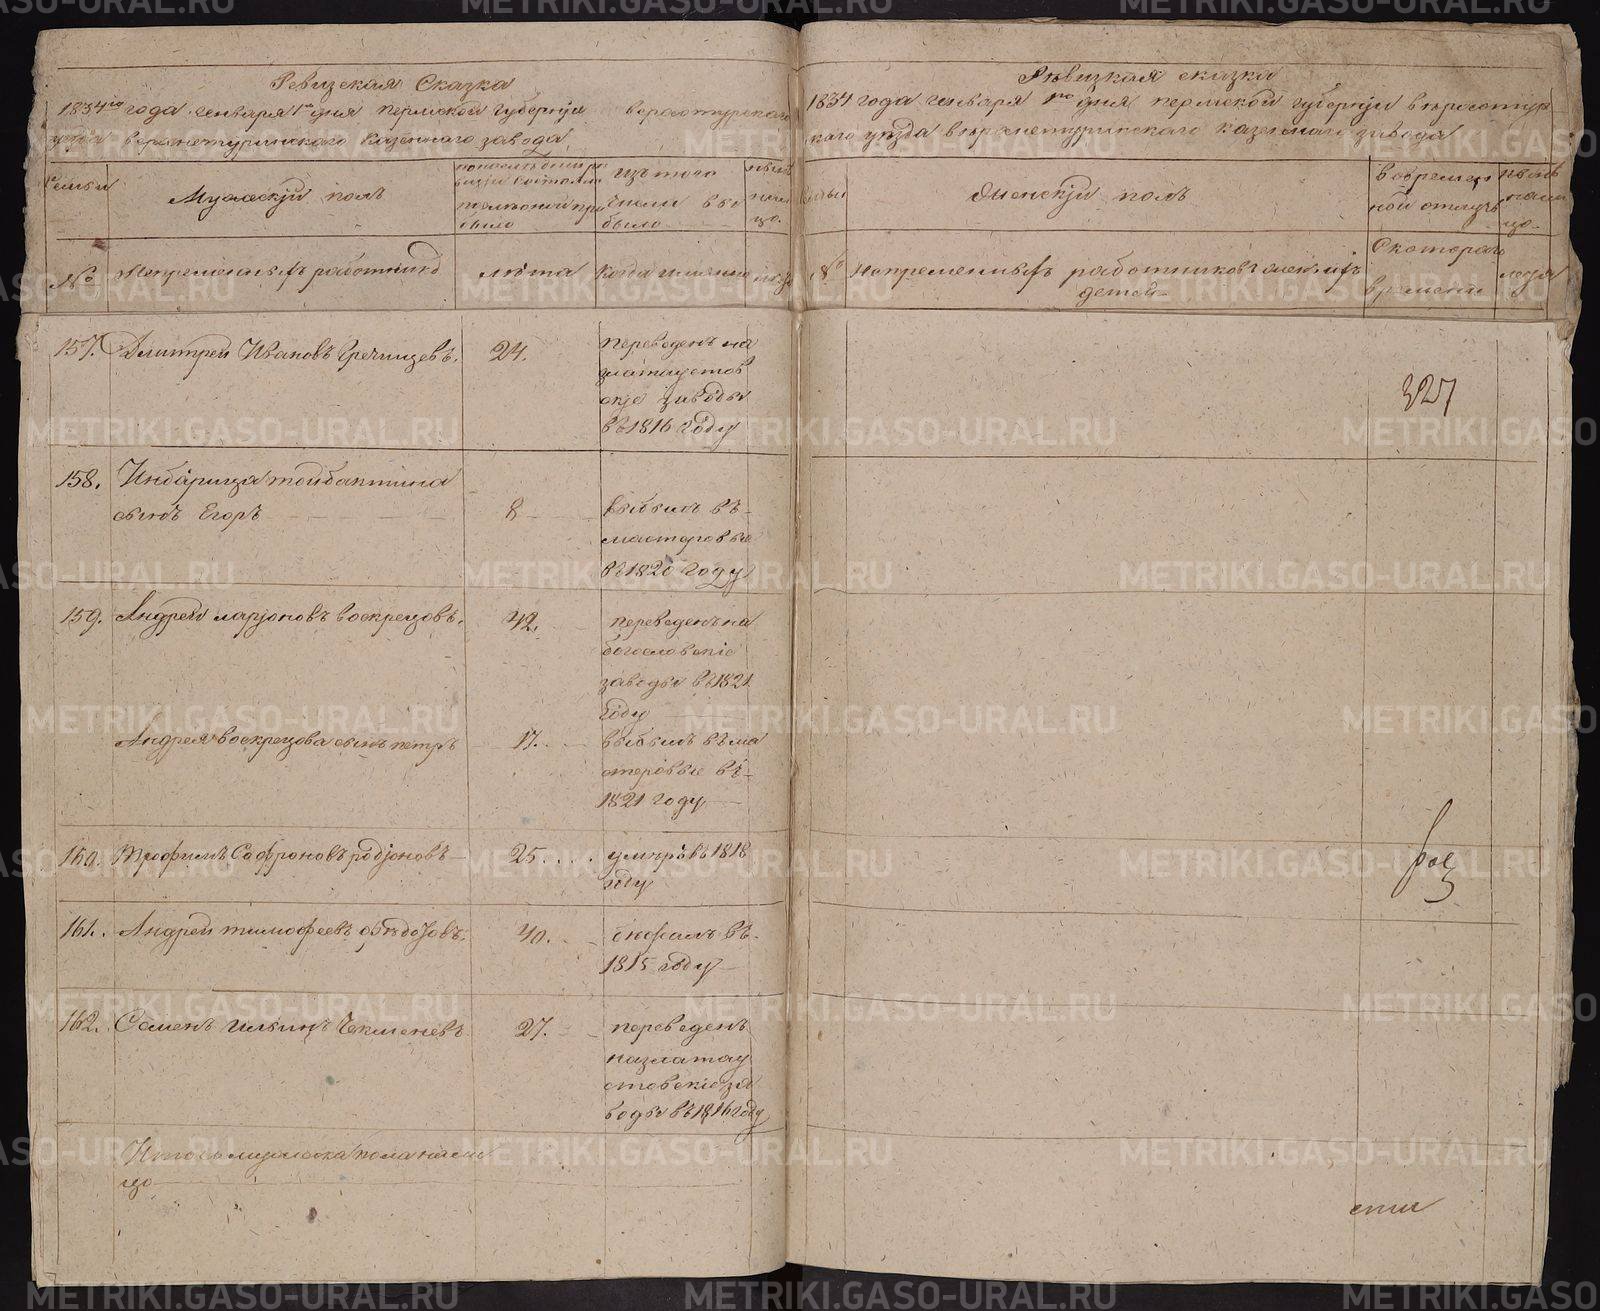 Ревизская Сказка
1834го года генваря 1го дня пермской губернїи верхотурскаго
уезда верхнетуринскаго казеннаго завода
семьи
Мужескїй полъ
по последней ре
визїи состояло
и после оной при
было
изъ того
числа вы
было
ныне
на ли
цо.
№
Непременныхъ работниковъ
лѣта
когда имянно
лѣта
157. Дмитрей Ивановъ Гречищевъ.
24.
переведенъ на
златоустов
скїе заводы
въ 1816 году
158.
сынъ Егоръ
8
выбылъ въ
мастеровые
въ 1820 году
159. Андрей ларїоновъ воскрецовъ.
42.
переведенъ на
богословскїе
заводы въ 1821
году
Андрея воскрецова сынъ петръ
17.
выбылъ въ ма
стеровые въ
1821 году
160. Трофимъ Софроновъ родїоновъ
25
умѣръ въ 1818
году
161. Андрей тимофеевъ
40.
въ
1815 году
162. Семенъ Ильинъ Чекменевъ
27.
переведенъ
на златоу
стовскїе за
воды въ 1816 году
Итого мужеска пола на ли
цо
Ревизкая сказка
1834 года генваря 1го дня пермской губернїи верхотур
скаго уезда верхнетуринскаго казеннаго завода
семьи
Женскїй полъ
во времен
ной отлучке
ныне
на ли
цо
№
непременныхъ работниковъ жен и ихъ
детей
Скотораго
времени
лета
327
METRIKI.GASO-URAL.RU